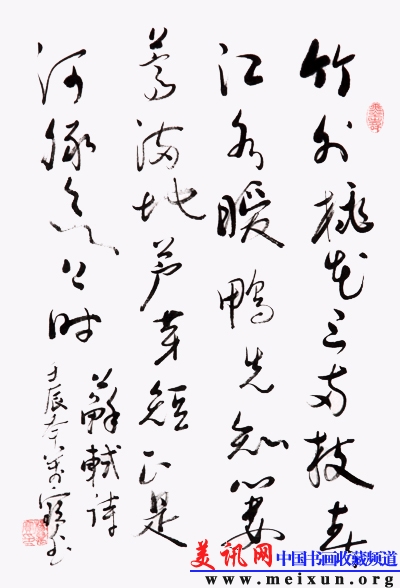 竹外桃花三两枝春
江水暖鸭先知蒌
蒿满地芦芽短正是
河豚欲上时
蘇軾詩
壬辰
美讯网 中国书画收藏频道
www.meixun.org